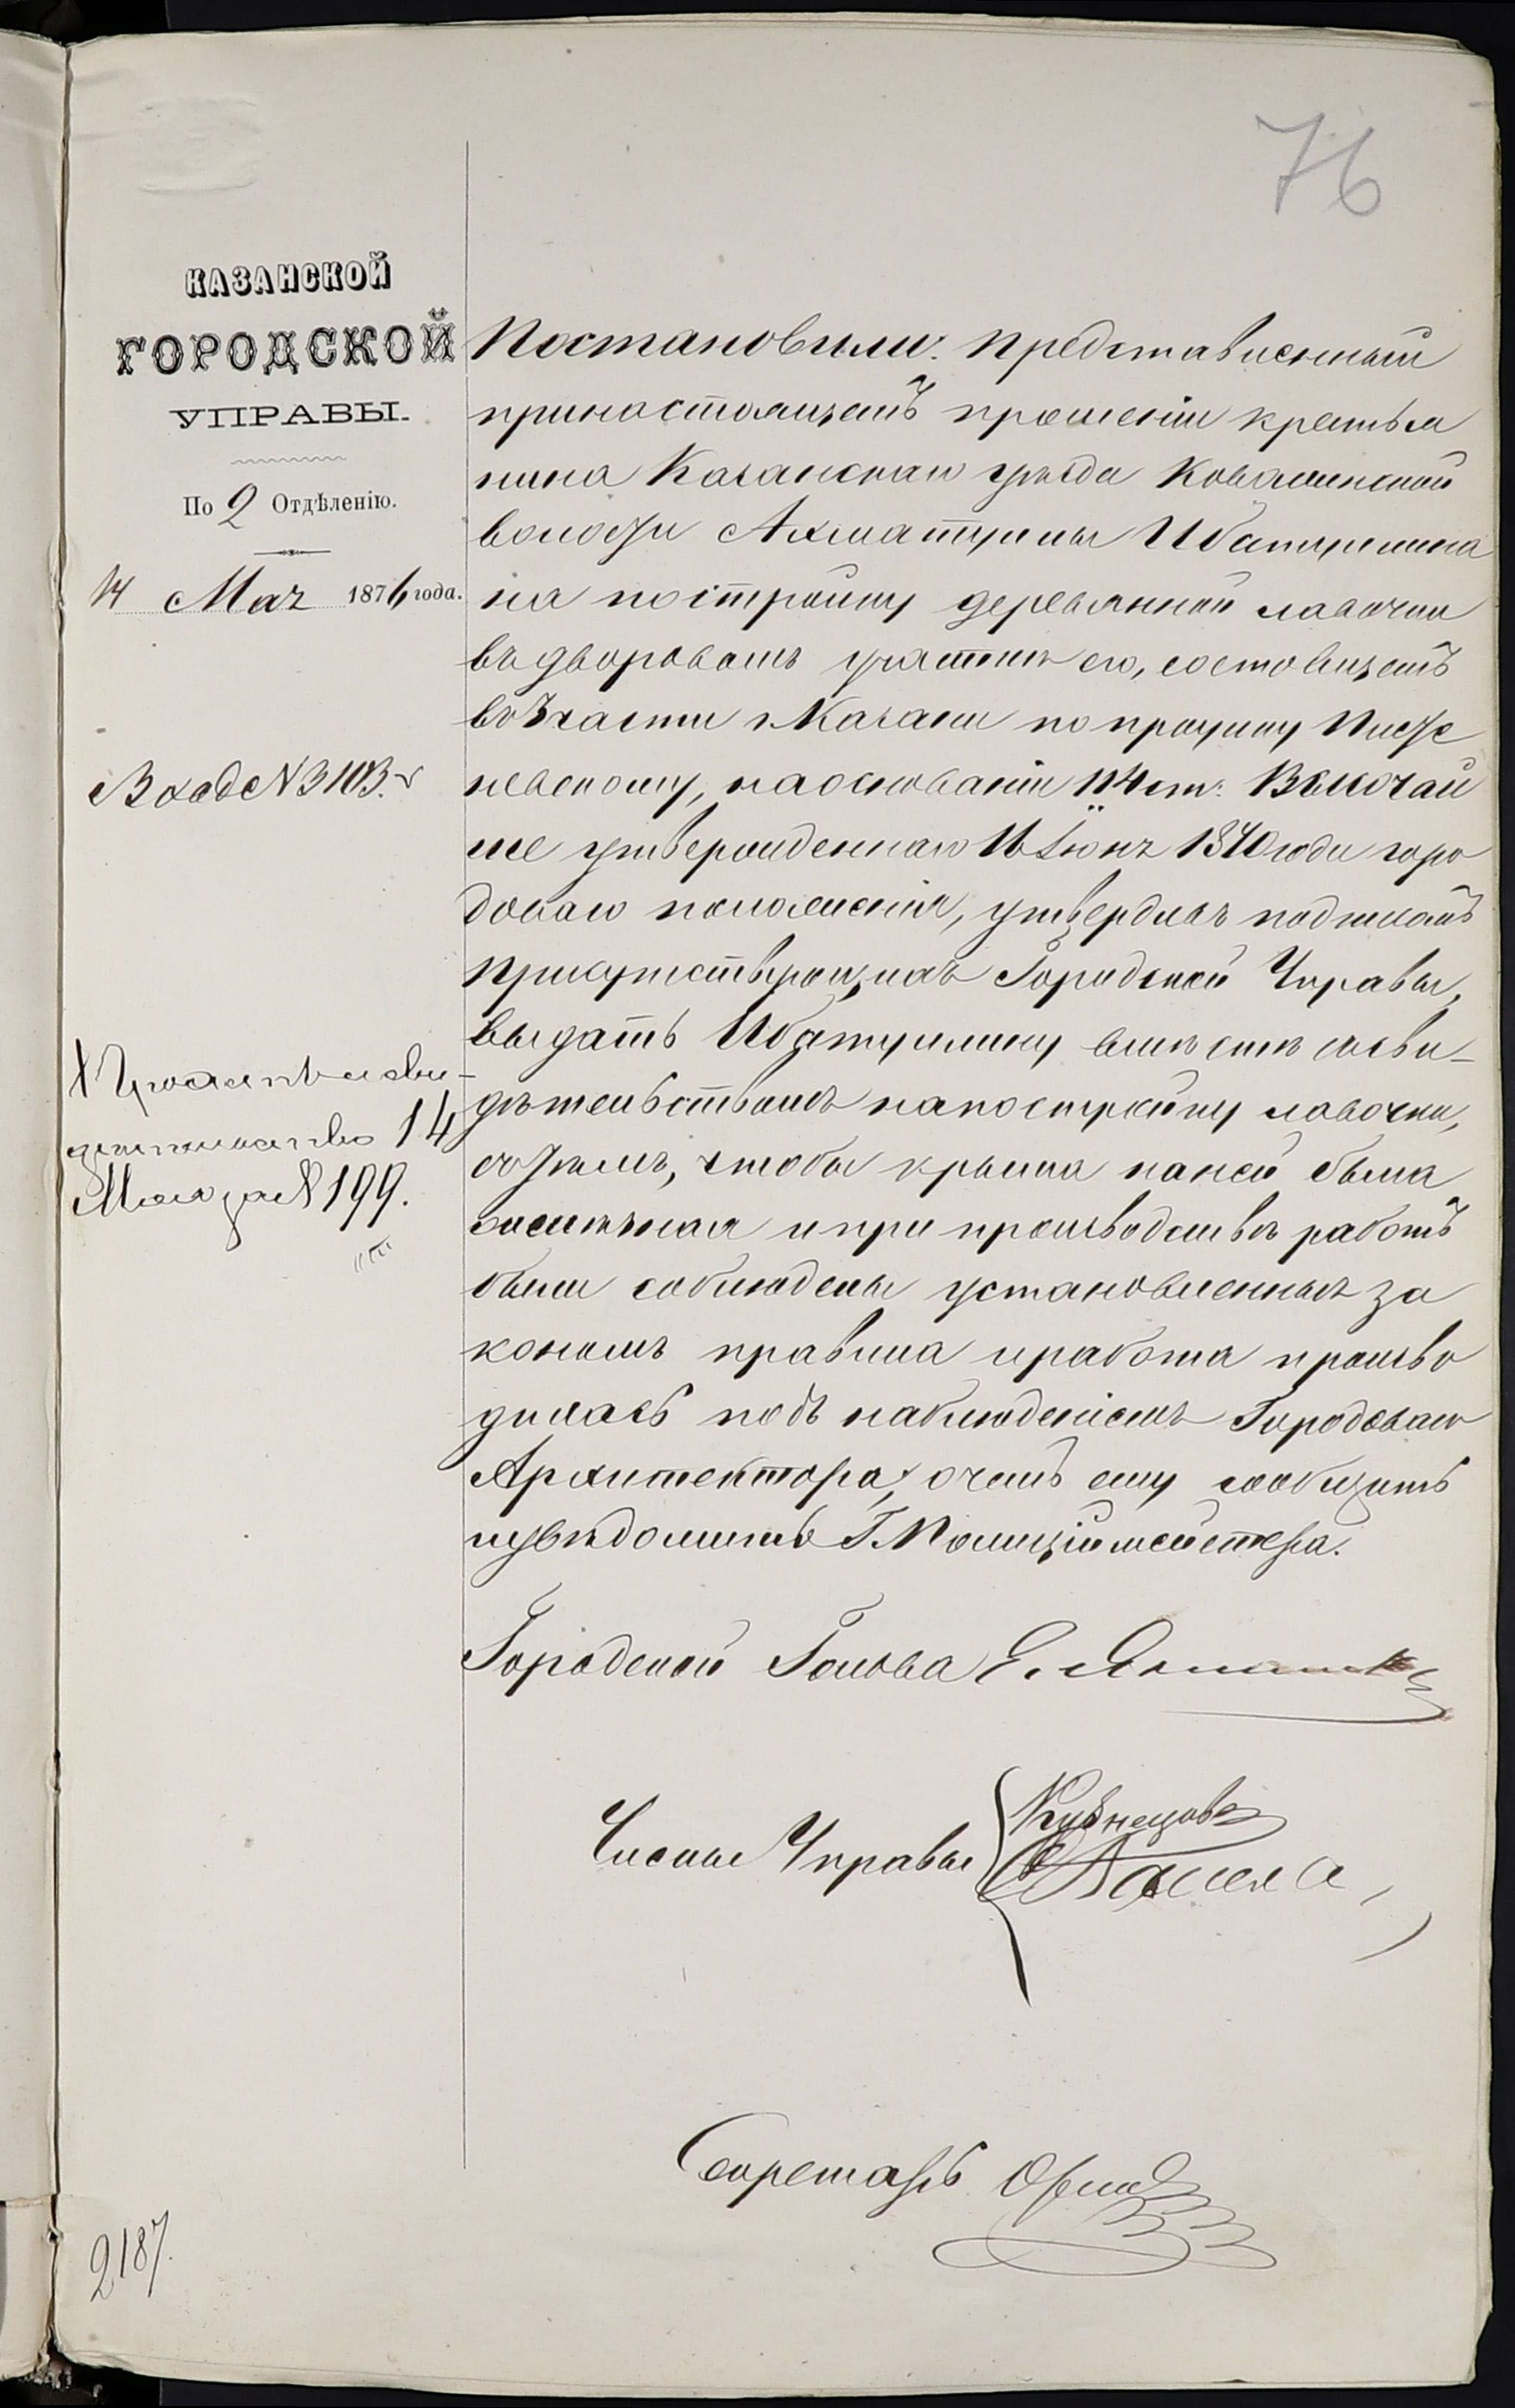 76
КАЗАНСКОЙ
ГОРОДСКОЙ
УПРАВЫ.
По 2 Отдѣленію.
14 Мая 1876 года.
Вход № 3103.
X Упраыленіе сви-
дѣтельство 14
Мая за № 199.
2187.
Постановили: представленный
при настоящемъ прошеніи крестья
нина Казанскаго уѣзда Ковалинской
волости Ахматуллы Ибатуллина
на постройку деревянной лавочки
въ дворовомъ участкѣ его, состоящемъ
въ 5 части г. Казани по проулку
невскому, на основаніи 114 ст. Высочай
ше утвержденнаго 16 Іюня 1870 года горо
доваго положенія, утвердивъ подписомъ
присутствующихъ Городской Управы,
выдать Ибатуллину вмѣстѣ съ сви-
дѣтельствомъ на постройку лавочки,
съ тѣмъ, чтобы крыша на ней была
желѣзная и при производствѣ работъ
были соблюдены установленныя за
кономъ правила и работа произво
дилась подъ наблюденіемъ Городоваго
Архитектора, X о чемъ ему сообщить
и увѣдомить Г. Полиціймейстера.
Городской Голова Е.
Члены Управы Кузнецовъ
Секретарь